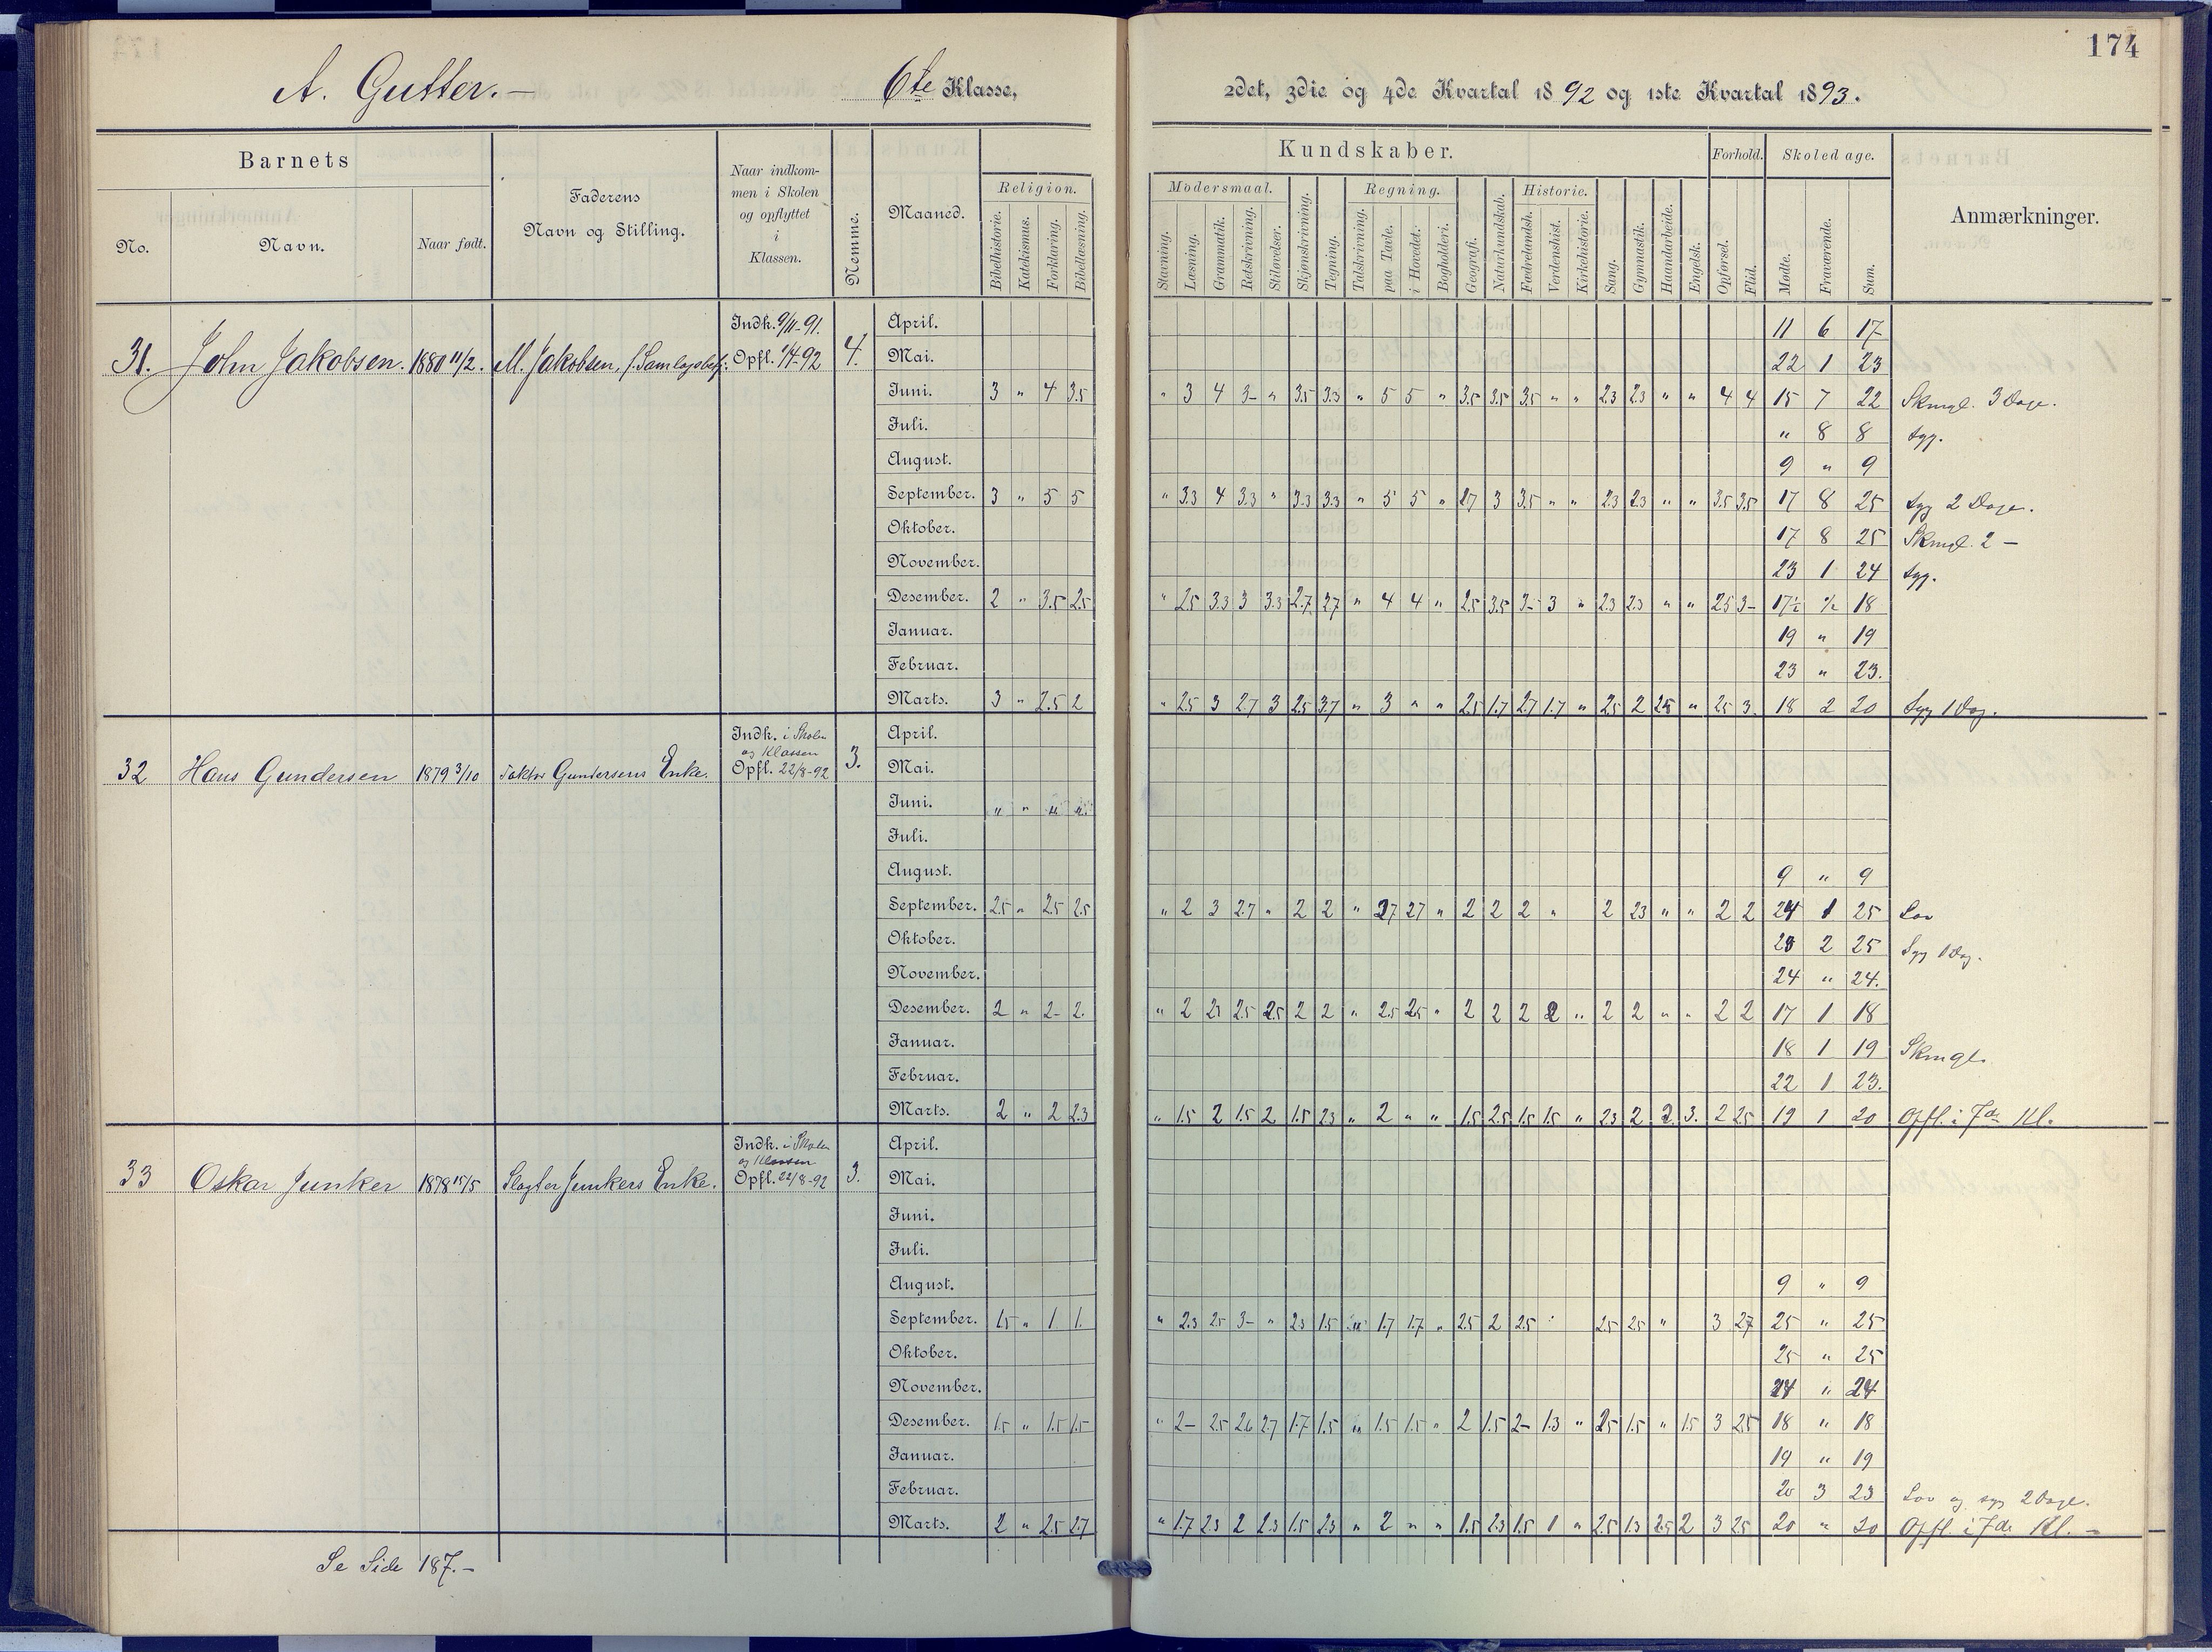 174
A. Gutter.—
6te Klasse,
2det, 3die og 4de Kvartal 1892 og 1ste Kvartal 1893.
Barnets
No.
Navn.
Naar født.
Faderens
Navn og Stilling.
Naar indkom-
men i Skolen
og opflyttet
i
Klassen.
Nemme.
Maaned.
Religion.
Bibelhistorie.
Katekismus.
Forklaring.
Bibellæsning.
Kundskaber.
Modersmaal.
Stavning.
Læsning.
Grammatik.
Retskrivning.
Stiløvelser.
Skjønskrivning.
Tegning.
Regning.
Talskrivning.
paa Tavle.
i Hovedet.
Bogholderi.
Geografi.
Naturkundskab.
Historie.
Fædrelandsh.
Verdenshist.
Kirkehistorie.
Sang.
Gymnastik.
Haandarbeide.
Engelsk.
Forhold.
Opførsel.
Flid.
Skoledage.
Mødte.
Fraværende.
Sum.
Anmærkninger.
31. John Jakobsen. 1880 11/2. M. Jakobsen,
Indk. 9/11-91.
Opfl. 1/4-92 4.
April. 11 6 17
Mai. 22 1 23
Juni. 3 " 4 3.5 " 3 4 3- " 3.5 3.3 " 5 5 " 3.5 3.5 3.5 " " 2.3 2.3 " " 4 4 15 7 22 Skmgl. 3 Dage.
Juli. " 8 8 syg.
August. 9 " 9
September. 3 " 5 5 " 3.3 4 3.3 " 3.3 3.3 " 5 5 " 2.7 3 3.5 " " 2.3 2.3 " " 3.5 3.5 17 8 25 syg 2 Dage.
Oktober. 17 8 25 Skmgl. 2 —
November. 23 1 24 syg.
Desember. 2 " 3.5 2.5 " 2.5 3.3 3 3.3 2.7 2.7 " 4 4 " 2.5 3.5 3- 3 " 2.3 2.3 " " 2.5 3- 17½ ½ 18
Januar. 19 " 19
Februar. 23 " 23.
Marts. 3 " 2.5 2 " 2.5 3 2.7 3 2.5 3.7 " 3 " " 2.5 1.7 2.7 1.7 " 2.5 2 2.5 " 2.5 3. 18 2 20 Syg 1 Dag.
32 Hans Gundersen 1879 3/10 Faktor Gundersens Enke.
Indk. i Skolen
og Klassen
Opfl. 22/8-92 3.
April.
Mai.
Juni. " " " "
Juli.
August. 9 " 9
September. 2.5 " 2.5 2.5 " 2 3 2.7 " 2 2 " 2.7 2.7 " 2 2 2 " 2 2.3 " " 2 2 24 1 25 Lov
Oktober. 23 2 25 Syg 1 Dag.
November. 24 " 24.
Desember. 2 " 2- 2. " 2 2.3 2.5 2.5 2 2 " 2.5 2.5 " 2 2 2 2 " 2 2 " " 2 2 17 1 18
Januar. 18 1 19 Skmgl.
Februar. 22 1 23.
Marts. 2 " 2 2.3 " 1.5 2 1.5 2 1.5 2.3 " 2 " " 1.5 2.5 1.5 1.5 " 2.3 2 2. 3. 2 2.5 19 1 20 Opfl. i 7de Kl.
33 Oskar Junker 1878 15/5 Slagter Junkers Enke.
Indk. i Skolen
og Klassen
Opfl. 22/8-92 3.
April.
Mai.
Juni.
Juli.
August. 9 " 9
September. 1.5 " 1 1. " 2.3 2.5 3- " 2.3 1.5 " 1.7 1.7 " 2.5 2 2.5 " 2.5 2.5 " 3 2.7 25 " 25
Oktober. 25 " 25
November. 24 " 24
Desember. 1.5 " 1.5 1.5 " 2- 2.5 2.6 2.7 1.7 1.5 " 1.5 1.5 " 2 1.5 2- 1.3 " 2.5 1.5 " 1.5 3 2.5 18 " 18
Januar. 19 " 19
Februar. 20 3 23 Lov og syg 2 Dage.
Marts. 2 " 2.5 2.7 " 1.7 2.3 2 2.3 1.5 2.3 " 2 " " 1.5 2.3 1.5 1 " 2.5 1.3 2.5 2 3 2.5 20 " 20 Opfl. i 7de Kl. —
Se Side 187.—